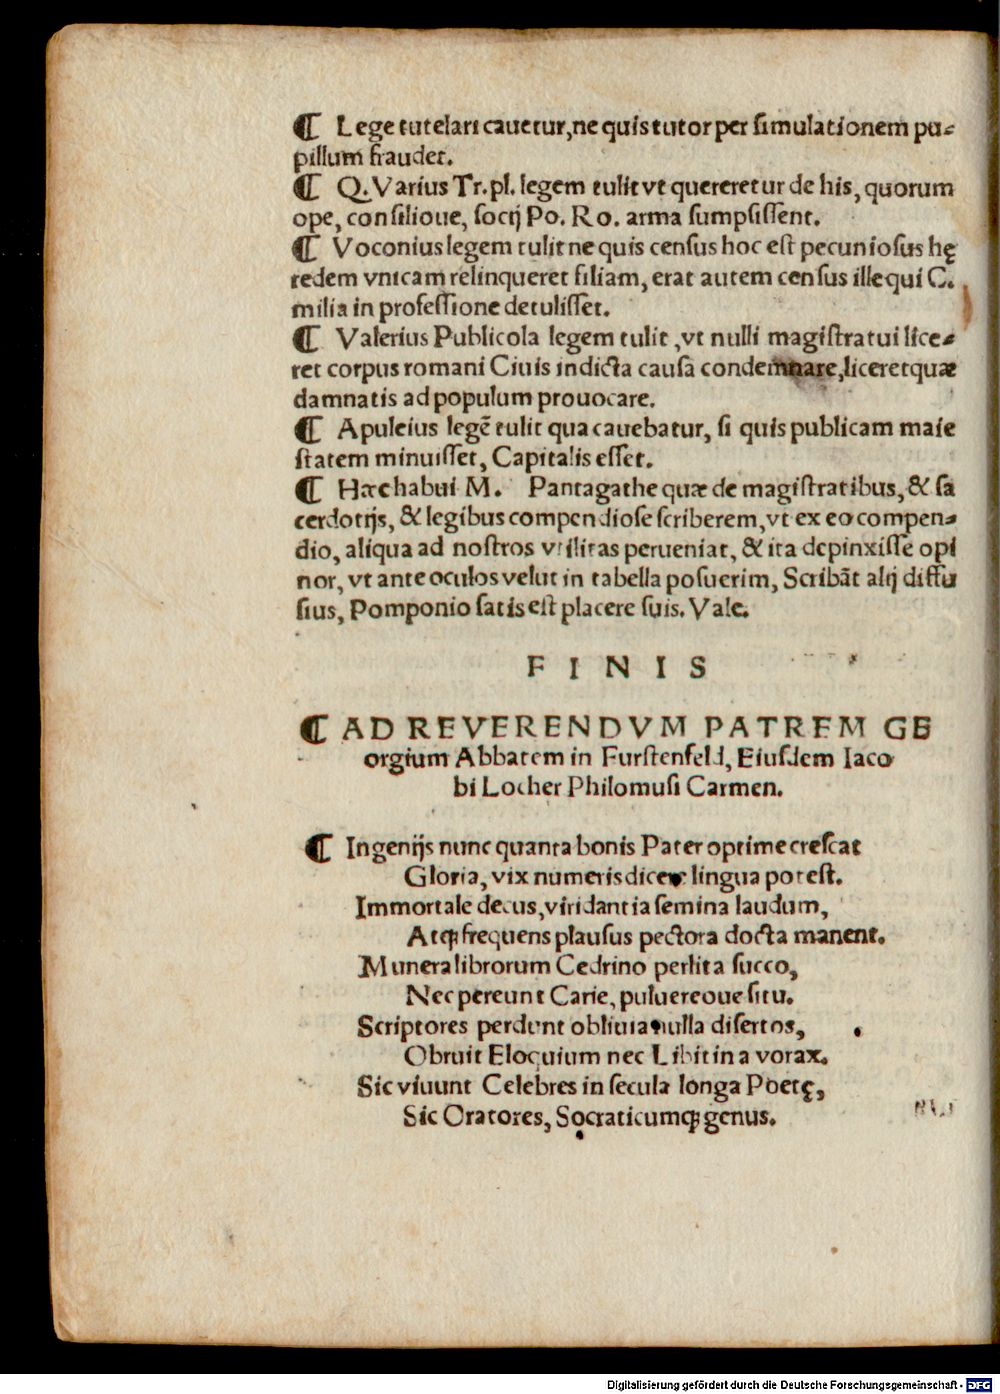 ¶ Lege tutelari cauetur, ne quis tutor per ſimulationem pu⸗
pillum fraudet.
¶ Q. Varius Tr. pl. legem tulit vt quereretur de his, quorum
ope, conſilioue, ſocij Po. Ro. arma ſumpſiſſent.
¶ Voconius legem tulit ne quis cenſus hoc eſt pecunioſus hę
redem vnicam relinqueret filiam, erat autem cenſus ille qui C.
milia in profeſſione detuliſſet.
¶ Valerius Publicola legem tulit, vt nulli magiſtratui lice⸗
ret corpus romani Ciuis indicta cauſa condemnare, liceretquæ
damnatis ad populum prouocare.
¶ Apuleius legē tulit qua cauebatur, ſi quis publicam maie
ſtatem minuiſſet, Capitalis eſſet.
¶ Hæc habui M. Pantagathe quæ de magiſtratibus, & ſa
cerdotijs, & legibus compendioſe ſcriberem, vt ex eo compen⸗
dio, aliqua ad noſtros vtilitas perueniat, & ita depinxiſſe opi
nor, vt ante oculos velut in tabella poſuerim, Scribāt alij diffu
ſius, Pomponio ſatis eſt placere ſuis. Vale.
FINIS
¶ AD REVERENDVM PATREM GE
orgium Abbatem in Furſtenfeld, Eiuſdem Iaco
bi Locher Philomuſi Carmen.
¶ Ingenijs nunc quanta bonis Pater optime creſcat
Gloria, vix numeris dicere lingua poteſt.
Immortale decus, viridantia ſemina laudum,
Atqꝫ frequens plauſus pectora docta manent.
Munera librorum Cedrino perlita ſucco,
Nec pereunt Carie, puluereoue ſitu.
Scriptores perdunt obliuia nulla diſertos,
Obruit Eloquium nec Libitina vorax.
Sic viuunt Celebres in ſecula longa Poetę,
Sic Oratores, Socraticumqꝫ genus.
Digitalisierung gefördert durch die Deutsche Forschungsgemeinschaft - DFG